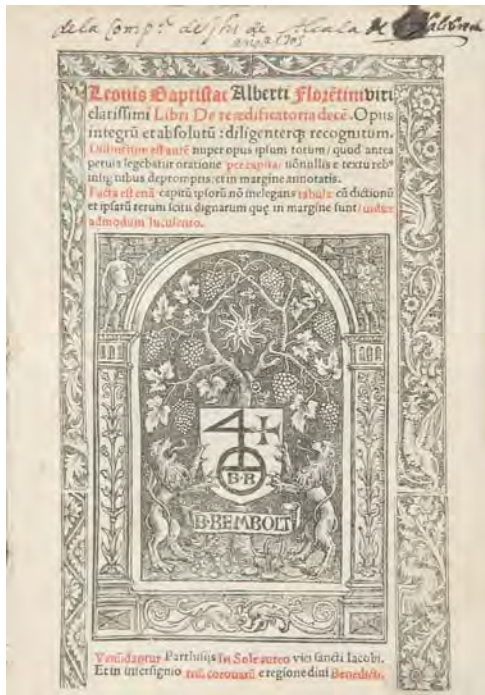 dela Comp.ª de Jhs de Alcala
Leonis Baptistae Alberti Florētini viri
clarissimi Libri De re ædificatoria decē. Opus
integrū et absolutū: diligenterq3 recognitum.
Distinctum est autē nuper opus ipsum totum/ quod antea
perpetua legebatur oratione per capita/ nōnullis e textu rebꝰ
insignibus depromptis/ et in margine annotatis.
Facta est enā capitū ipsorū nō inelegans tabula cū dictionū
et ipsarū rerum scitu dignarum quę in margine sunt/ indice
admodum luculento.
4
B·R
B·REMBOLT
Venundantur Parrhisijs In Sole aureo vici sancti Iacobi.
Et in intersignio triū coronarū e regione diui Benedicti.